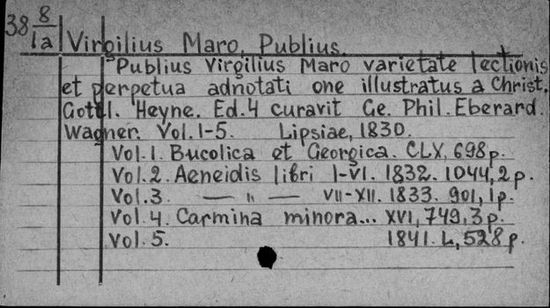 38 8/1a
Virgilius Maro, Publius.
Publius Virgilius Maro varietate lectionis
et perpetua adnotati one illustratus a Christ.
Gottl. Heyne. Ed.4 curavit Ge. Phil. Eberard.
Wagner. Vol.1-5. Lipsiae, 1830.
Vol.1. Bucolica et Georgica. CLX, 698p.
Vol.2. Aeneidis libri I-VI. 1832. 1044,2p.
Vol.3. — " — VII-XII. 1833. 901,1p.
Vol.4. Carmina minora... XVI, 749,3p.
Vol.5. 1841. L, 528p.